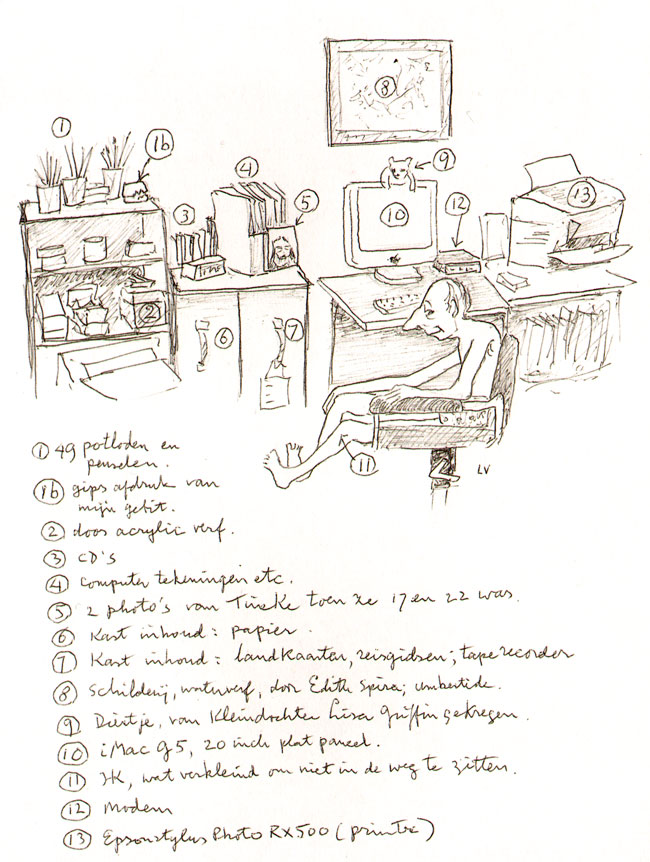 8
1
1b
9
4
13
5
3
10
12
2
6
7
11
LV
1 49 potloden en
penselen.
1b gips afdruk van
mijn gebit.
2 doos acrylic verf.
3 CD's
4 Computer tekeningen etc.
5 2 photo's van Tineke toen ze 17 en 22 was.
6 Kast inhoud: papier.
7 Kast inhoud: landkaarten, reisgidsen; taperecorder
8 Schilderij, waterverf, door Edith Spira; Umbertide.
9 Diertje, van Kleindochter Lisa Griffin gekregen.
10 iMac G5, 20 inch plat paneel.
11 IK, wat verkleind om niet in de weg te zitten.
12 Modem
13 Epson stylus Photo RX500 (printer)